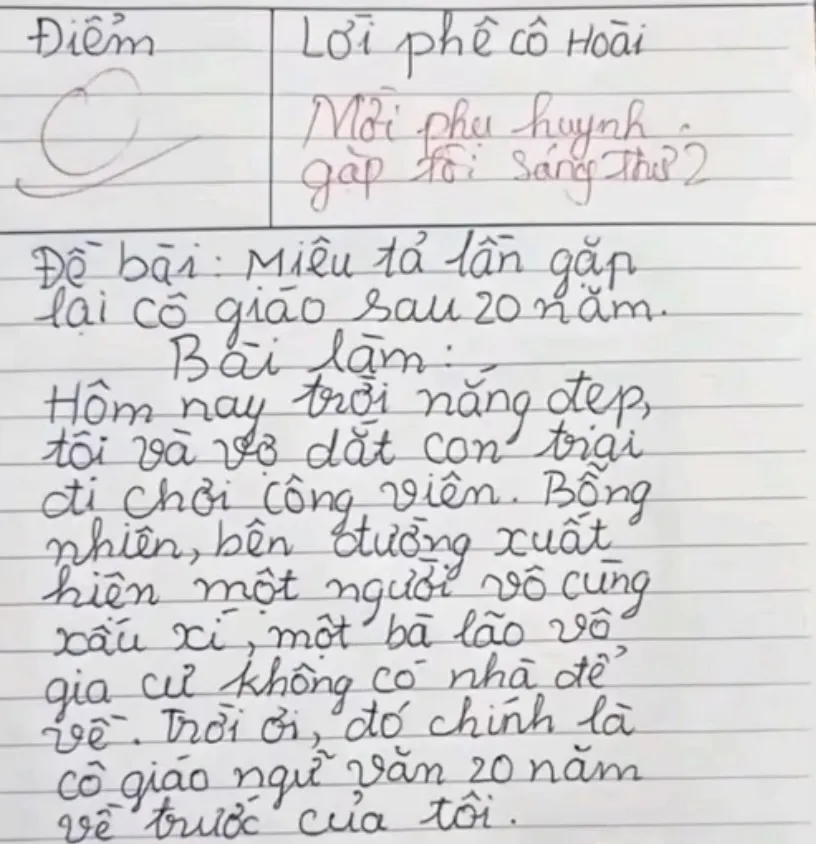 Điểm
Lời phê cô Hoài
0
Mời phụ huynh
gặp tôi sáng Thứ 2
Đề bài: Miêu tả lần gặp
lại cô giáo sau 20 năm.
Bài làm:
Hôm nay trời nắng đẹp,
tôi và vợ dắt con trai
đi chơi công viên. Bỗng
nhiên, bên đường xuất
hiện một người vô cùng
xấu xí, một bà lão vô
gia cư không có nhà để
về. Trời ơi, đó chính là
cô giáo ngữ văn 20 năm
về trước của tôi.